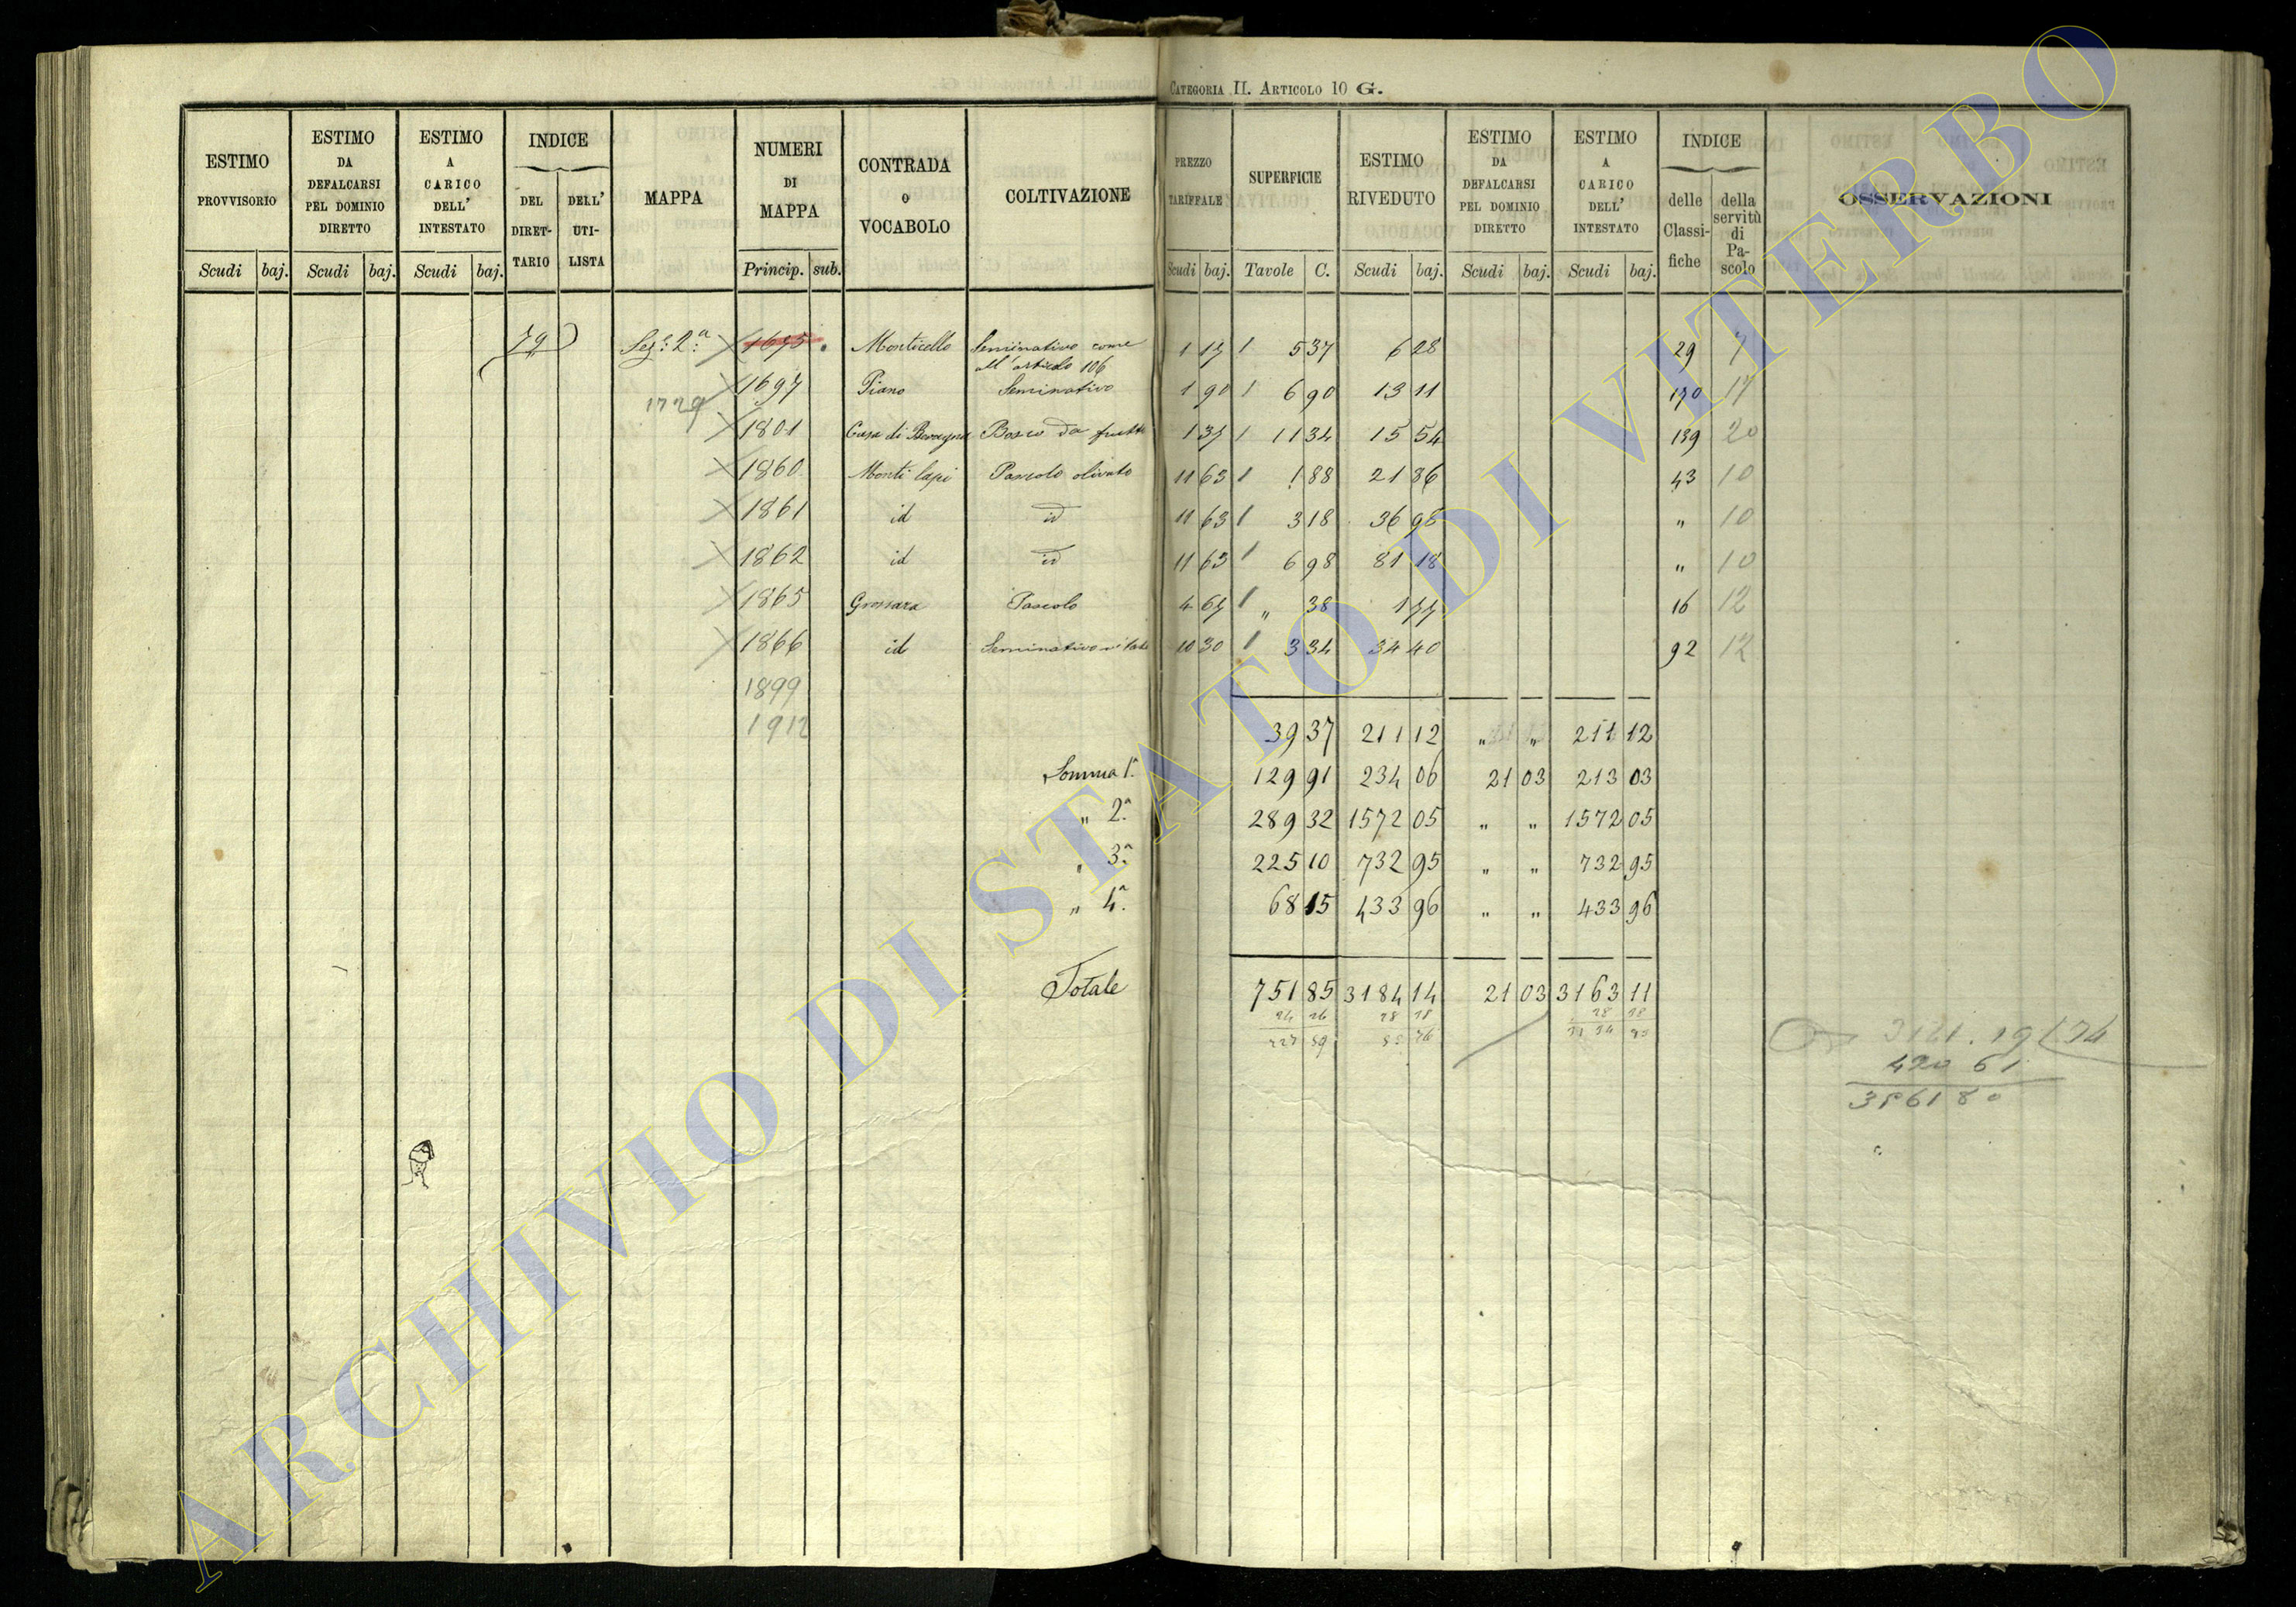 CATEGORIA II. ARTICOLO 10 G.
ESTIMO PROVVISORIO
Scudi baj.
ESTIMO DA DEFALCARSI PEL DOMINIO DIRETTO
Scudi baj.
ESTIMO A CARICO DELL' INTESTATO
Scudi baj.
INDICE
DEL DIRET-TARIO
DELL' UTI-LISTA
MAPPA
NUMERI DI MAPPA
Princip. sub.
CONTRADA O VOCABOLO
COLTIVAZIONE
PREZZO TARIFFALE
Scudi baj.
SUPERFICIE
Tavole C.
ESTIMO RIVEDUTO
Scudi baj.
ESTIMO DA DEFALCARSI PEL DOMINIO DIRETTO
Scudi baj.
ESTIMO A CARICO DELL' INTESTATO
Scudi baj.
INDICE
delle Classi-fiche
della servitù di Pa-scolo
OSSERVAZIONI
79 Sez.e 2.a 1695 Monticello Seminativo come all'articolo 106 1 17 5 37 6 28 29 7
1697 Piano Seminativo 1 90 6 90 13 11 170 17
1729
1801 Bosco da frutto 1 37 11 34 15 54 139 20
1860 Monti lapi Pascolo olivato 11 63 1 88 21 86 43 10
1861 id id 11 63 3 18 36 98 " 10
1862 id id 11 63 6 98 81 18 " 10
1865 Grossara Pascolo 4 67 " 38 1 77 16 12
1866 id Seminativo vitato 10 30 3 34 34 40 92 12
1899
1912
39 37 211 12 " " 211 12
Somma 1.a 129 91 234 06 21 03 213 03
" 2.a 289 32 1572 05 " " 1572 05
" 3.a 225 10 732 95 " " 732 95
" 4.a 68 15 433 96 " " 433 96
Totale 751 85 3184 14 21 03 3163 11
24 26 28 18 28 18
727 59
3121.19
420 61
ARCHIVIO DI STATO DI VITERBO